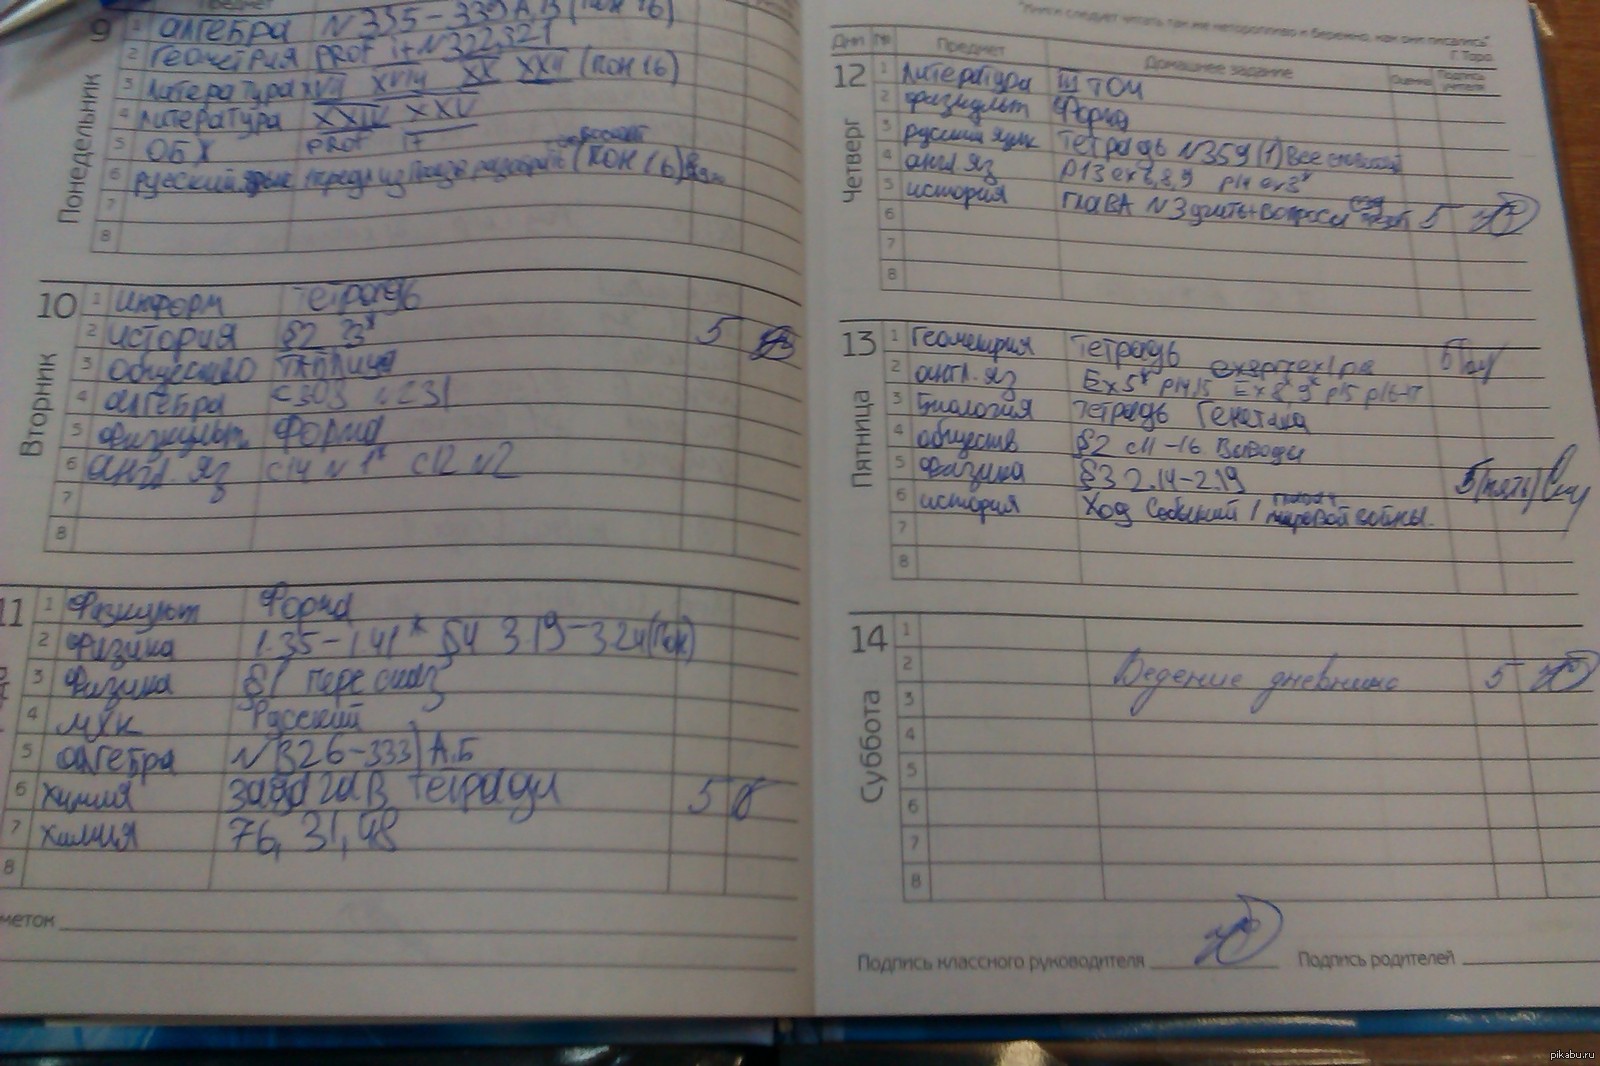 Предмет
9
Понедельник
1 алгебра N 335-339 А,В (пон 16)
2 Геометрия PROF i+N 322,321
3 литература XVII XVIII XX XXII (ПОН 16)
4 литература XXIV XXV
5 ОБЖ PROF i+
6 русский язык (ПОН 16)
7
8
10
Вторник
1 информ тетрадь
2 история §2 ?3* 5
3 общество таблица
4 алгебра с303 с231
5 Физкульт Форма
6 англ. яз с14 N 1* с12 N2
7
8
11
1 Физкульт Форма
2 Физика 1.35-1.41* §4 3.19-3.24 (Пон)
3 Физика §1 пересказ
4 МХК Русский
5 алгебра N 326-333) А.Б
6 химия задача в тетради 5
7 химия 76, 31, 48
8
меток
"Книги следует читать так же неторопливо и бережно, как они писались".
Г. Торо
Дни № Предмет Домашнее задание Оценка Подпись учителя
12
Четверг
1 литература III ТОМ
2 физкульт Форма
3 русский язык тетрадь N 359 (1) все
4 англ. яз p13 ex 7,8,9 p14 ex3*
5 история ГЛАВА N 3 учить+вопросы 5
6
7
8
13
Пятница
1 Геометрия тетрадь 5
2 англ. яз Ex 5* p14,15 Ex 8* 9* p15 p16-17
3 Биология тетрадь Генетика
4 обществ §2 с11-16. Выводы
5 физика §3 2.14-2.19 5 (пять)
6 история Ход событий 1 мировой войны.
7
8
14
Суббота
1
2 Ведение дневника 5
3
4
5
6
7
8
Подпись классного руководителя Подпись родителей
pikabu.ru